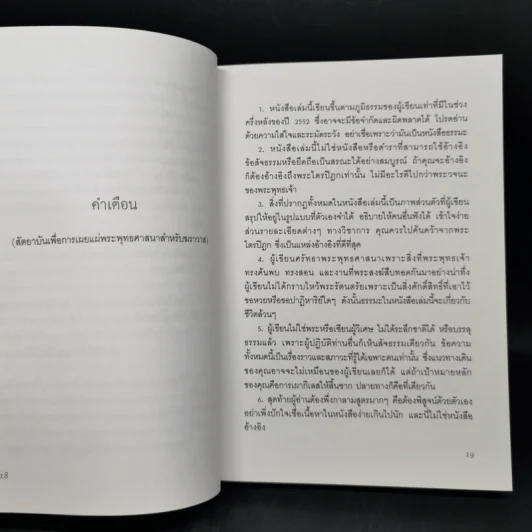 คำเตือน
(สัตยาบันเพื่อการเผยแผ่พระพุทธศาสนาสำหรับฆราวาส)
18
1. หนังสือเล่มนี้เขียนขึ้นตามภูมิธรรมของผู้เขียนเท่าที่มีในช่วง
ครึ่งหลังของปี 2552 ซึ่งอาจจะมีข้อจำกัดและผิดพลาดได้ โปรดอ่าน
ด้วยความใส่ใจและระมัดระวัง อย่าเชื่อเพราะว่ามันเป็นหนังสือธรรมะ
2. หนังสือเล่มนี้ไม่ใช่หนังสือหรือตำราที่สามารถใช้อ้างอิง
ข้ออัลธรรมหรือยึดถือเป็นสรณะได้อย่างสมบูรณ์ ถ้าคุณจะอ้างอิง
ก็ต้องอ้างอิงถึงพระไตรปิฎกเท่านั้น ไม่มีอะไรดีไปกว่าพระวจนะ
ของพระพุทธเจ้า
3. สิ่งที่ปรากฏทั้งหมดในหนังสือเล่มนี้เป็นภาพส่วนตัวที่ผู้เขียน
สรุปให้อยู่ในรูปแบบที่ตัวเองจำได้ อธิบายให้คนอื่นฟังได้ เข้าใจง่าย
ส่วนรายละเอียดต่างๆ ทางวิชาการ คุณควรไปค้นคว้าจากพระ
ไตรปิฎก ซึ่งเป็นแหล่งอ้างอิงที่ดีที่สุด
4. ผู้เขียนศรัทธาพระพุทธศาสนาเพราะสิ่งที่พระพุทธเจ้า
ทรงค้นพบ ทรงสอน และงานที่พระสงฆ์สืบทอดกันมาอย่างน่าทึ่ง
ผู้เขียนไม่ได้กราบไหว้พระรัตนตรัยเพราะเป็นสิ่งศักดิ์สิทธิ์ที่เอาไว้
ขอหวยหรือขอปาฏิหาริย์ใดๆ ดังนั้นธรรมะในหนังสือเล่มนี้จะเกี่ยวกับ
ชีวิตล้วนๆ
5. ผู้เขียนไม่ใช่พระหรือเซียนผู้วิเศษ ไม่ได้ระลึกชาติได้ หรือบรรลุ
ธรรมแล้ว เพราะผู้ปฏิบัติท่านอื่นก็เห็นสัจธรรมเดียวกัน ข้อความ
ทั้งหมดนี้เป็นเรื่องราวและสภาวะที่รู้ได้เฉพาะตนเท่านั้น ซึ่งแนวทางเดิน
ของคุณอาจจะไม่เหมือนของผู้เขียนเลยก็ได้ แต่ถ้าเป้าหมายหลัก
ของคุณคือการเผากิเลสให้สิ้นซาก ปลายทางก็คือที่เดียวกัน
6. สุดท้ายผู้อ่านต้องพึ่งกาลามสูตรมากๆ คือต้องพิสูจน์ด้วยตัวเอง
อย่าเพิ่งปักใจเชื่อเนื้อหาในหนังสือง่ายเกินไปนัก และนี่ไม่ใช่หนังสือ
อ้างอิง
19